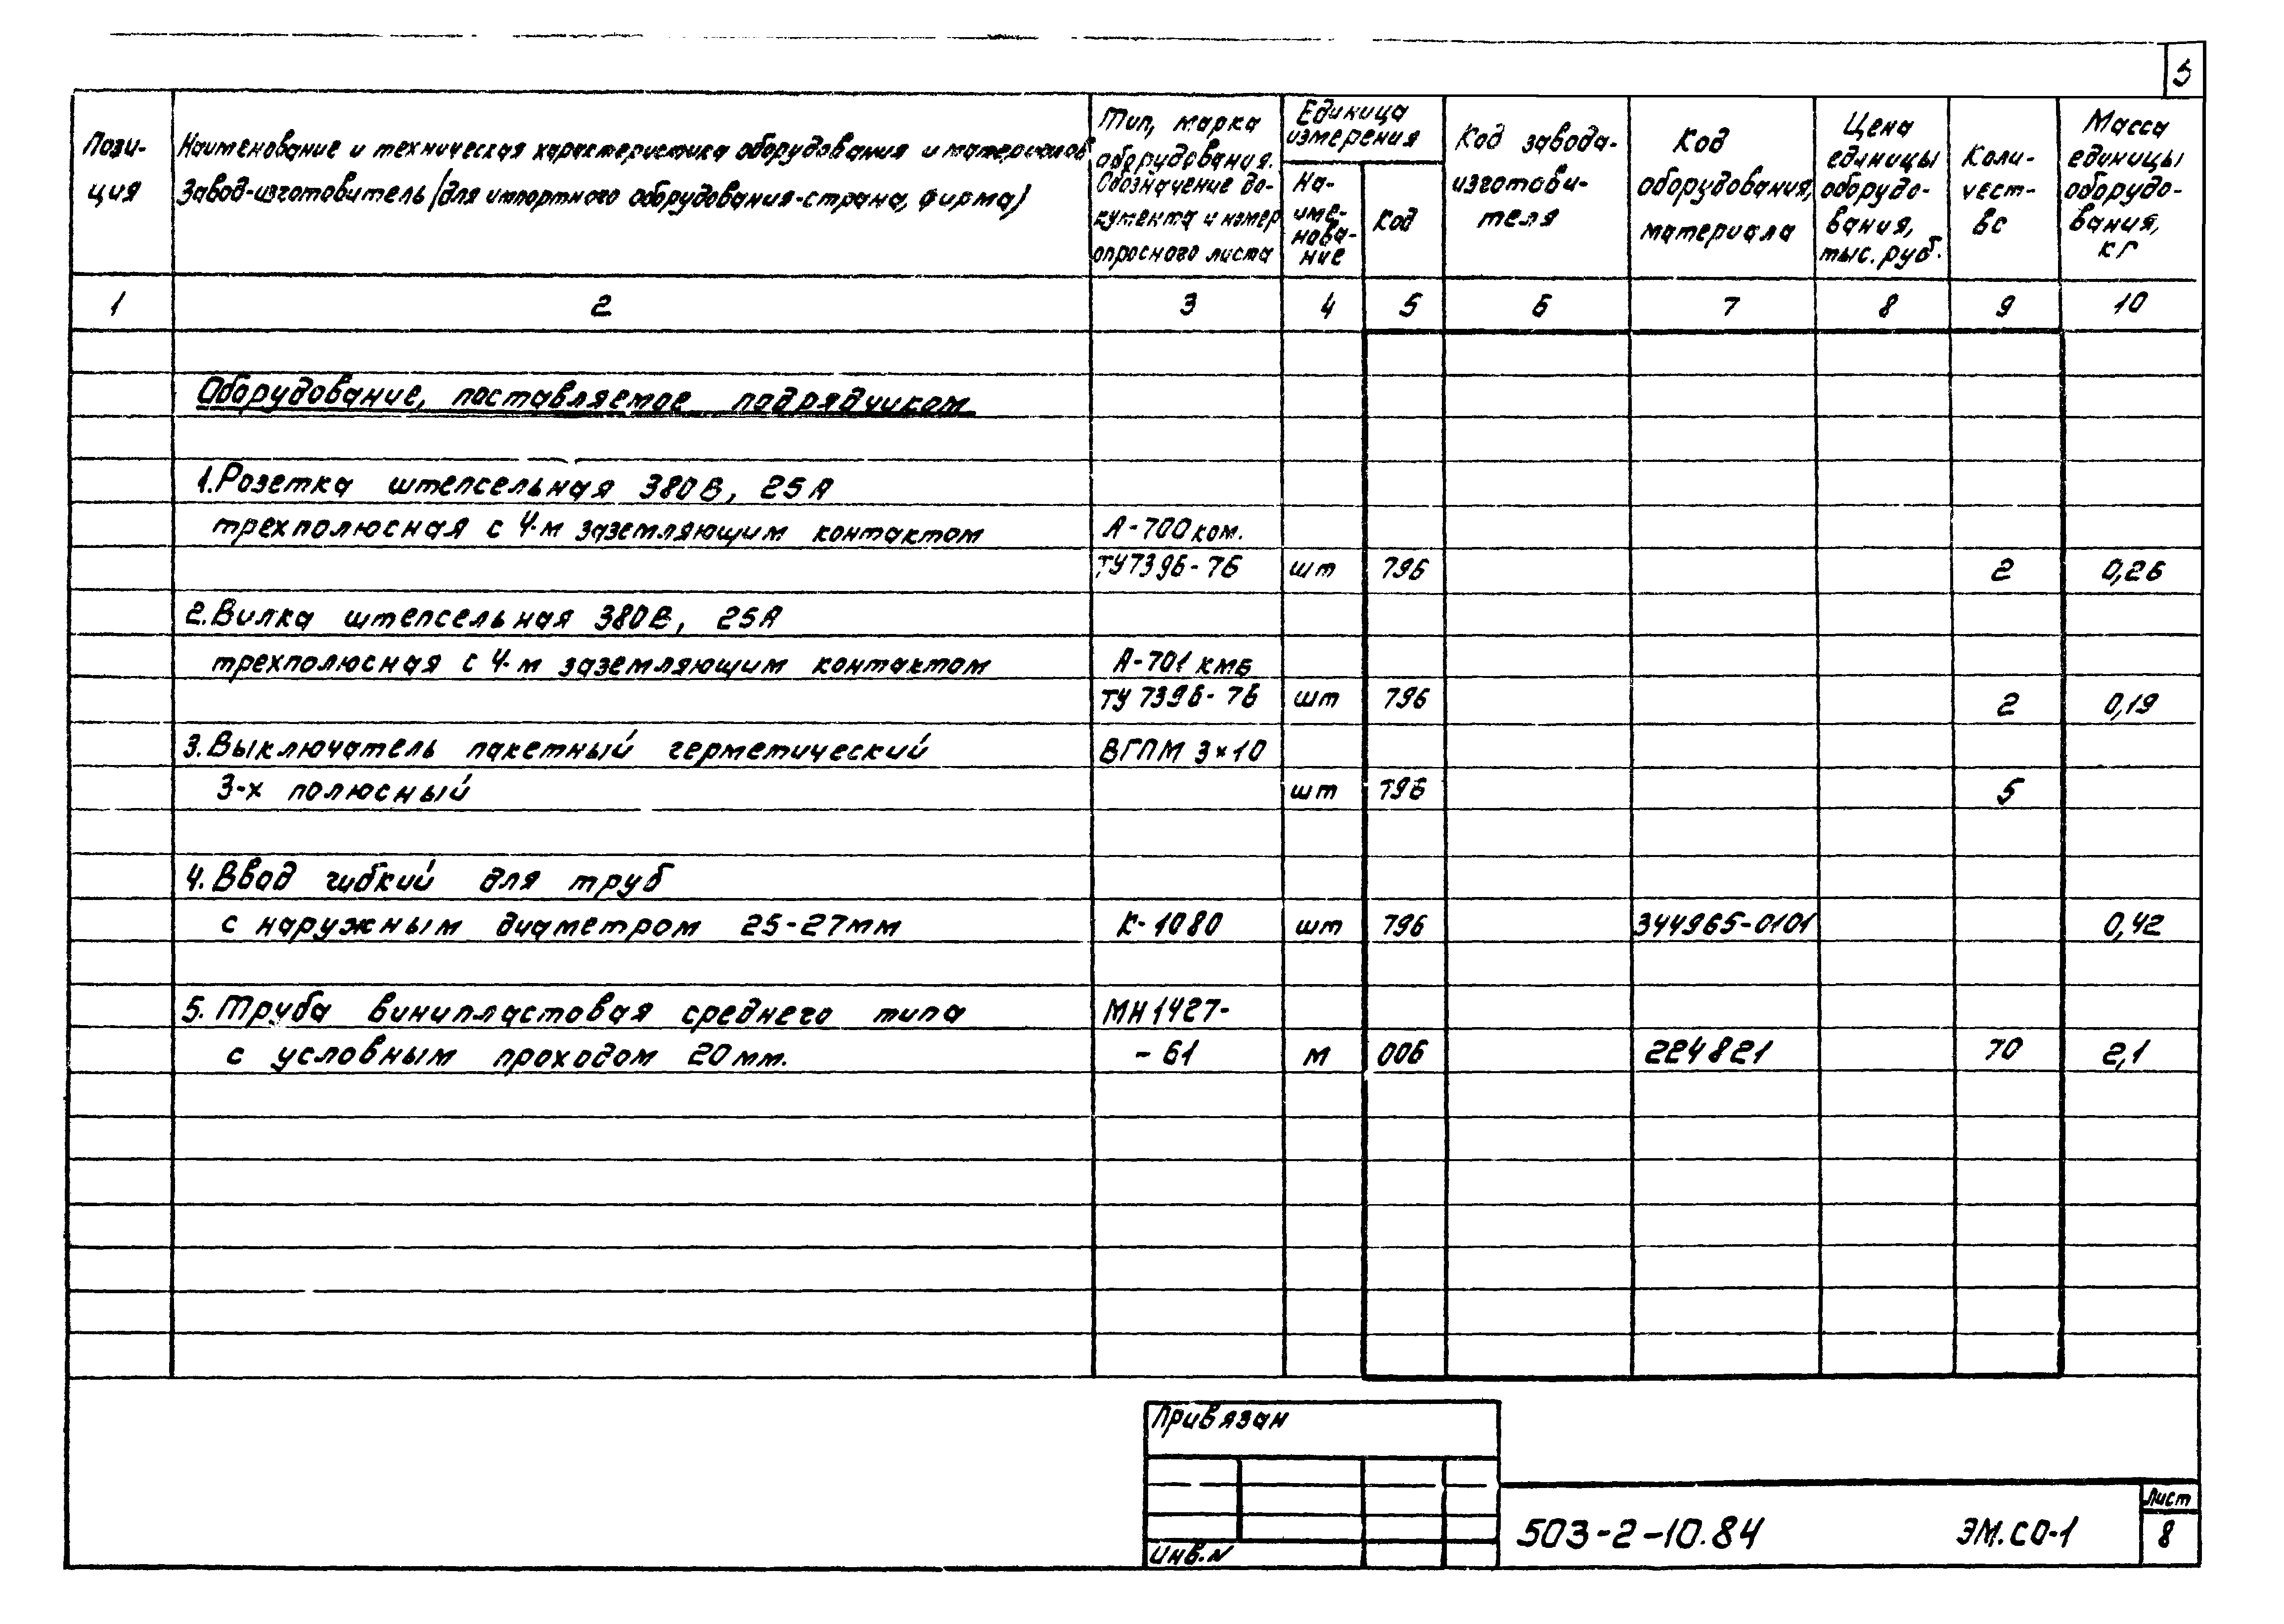 5
Пози-
ция
Наименование и техническая характеристика оборудования и материалов
Завод-изготовитель (для импортного оборудования-страна, фирма)
Тип, марка
оборудования.
Обозначение до-
кумента и номер
опросного листа
Единица
измерения
На-
име-
нова-
ние
Код
Код завода-
изготови-
теля
Код
оборудования,
материала
Цена
единицы
оборудо-
вания,
тыс. руб.
Коли-
чест-
во
Масса
единицы
оборудо-
вания,
кг
1 2 3 4 5 6 7 8 9 10
Оборудование, поставляемое подрядчиком
1. Розетка штепсельная 380В, 25А
трехполюсная с 4-м заземляющим контактом А-700 ком.
ТУ7396-76 шт 796 2 0,26
2. Вилка штепсельная 380В, 25А
трехполюсная с 4-м заземляющим контактом А-701 кмб
ТУ 7396-76 шт 796 2 0,19
3. Выключатель пакетный герметический ВГПМ 3×10
3-х полюсный шт 796 5
4. Ввод гибкий для труб
с наружным диаметром 25-27мм К-1080 шт 796 344965-0101 0,42
5. Труба винипластовая среднего типа МН1427-
с условным проходом 20мм. -61 м 006 224821 70 2,1
Привязан
Инв.N
503-2-10.84 ЭМ.СО-1
Лист
8